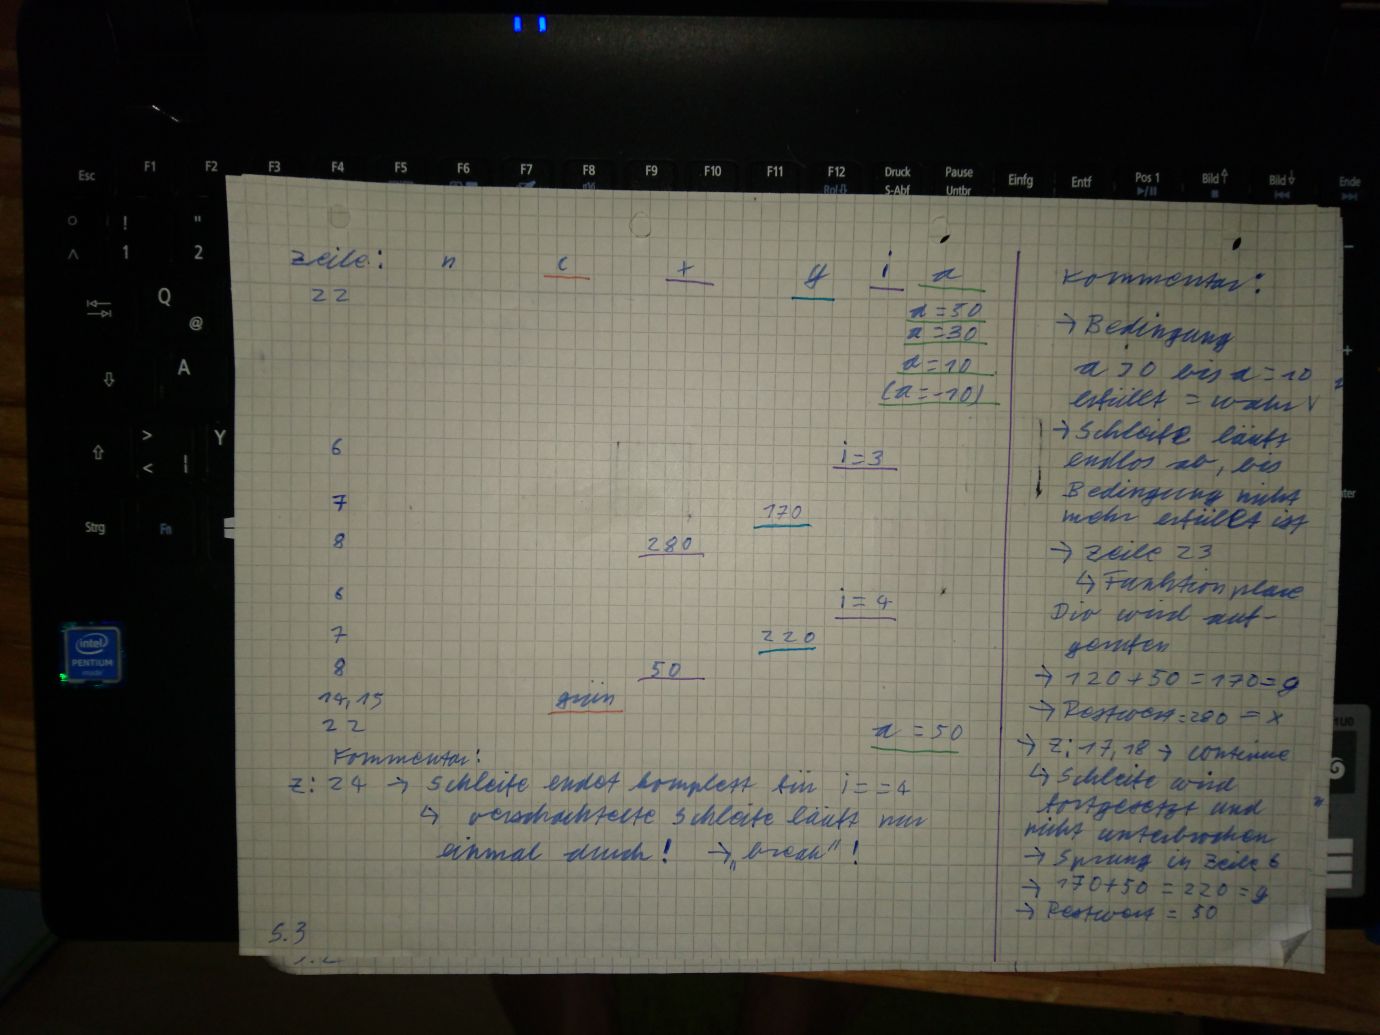 Esc F1 F2 F3 F4 F5 F6 F7 F8 F9 F10 F11 F12 Druck Pause Einfg Entf Pos 1 Bild Bild Ende
S-Abf Untbr
! "
^ 1 2
Q
@
A
> Y
<
Strg Fn
intel
PENTIUM
inside
Zeile: n c x g i a
22
a=50
a=30
a=10
(a=-10)
6 i=3
7 170
8 280
6 i=4
7 220
8 50
14,15 grün
22 a=50
Kommentar:
Z: 24 → Schleife endet komplett für i==4
↳ verschachtelte Schleife läuft nur
einmal durch! → „break"!
S.3
Kommentar:
→ Bedingung
a>0 bis a=10
erfüllt = wahr
→ Schleife läuft
endlos ab, bis
Bedingung nicht
mehr erfüllt ist
→ Zeile 23
↳ Funktion place
Div wird auf-
gerufen
→ 120+50=170=g
→ Restwert=280=x
→ Z:17,18 → continue
↳ Schleife wird
fortgesetzt und
nicht unterbrochen
→ Sprung in Zeile 6
→ 170+50=220=g
→ Restwert = 50